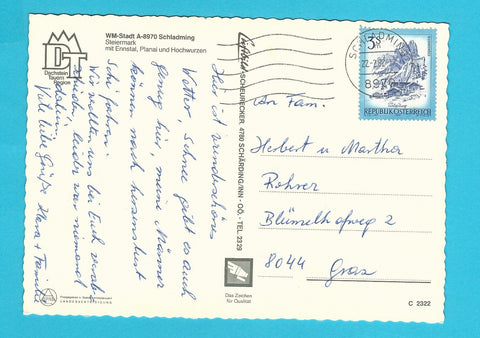 WM-Stadt A-8970 Schladming
Steiermark
mit Ennstal, Planai und Hochwurzen
DT
Dachstein
Tauern
Region
Hier ist wunderschönes
Wetter, Schnee gibt es auch
genug hier, meine Männer
können nach Herzenslust
Schi fahren.
Wir wollten uns bei Euch verab-
schieden, leider war niemand
daheim.
Viele liebe Grüße
SCHEURECKER, 4780 SCHÄRDING/INN - OÖ. - TEL. 2329
Das Zeichen
für Qualität
SCHLADMING
8970
3 S
REPUBLIK ÖSTERREICH
An Fam.
Herbert u. Martha
Rohrer
8044 Graz
C 2322